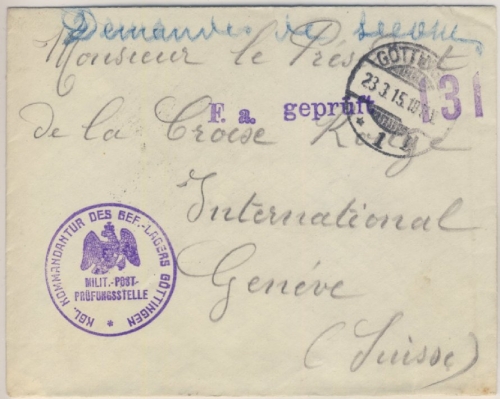 Demandes de secours
Monsieur le Président
GÖTTINGEN
23.3.15.10-11V.
* 1 *
131
F. a. geprüft
de la Croise Rouge
International
Genève
(Suisse)
KGL. KOMMANDANTUR DES GEF.-LAGERS GÖTTINGEN *
MILIT.-POST-
PRÜFUNGSSTELLE